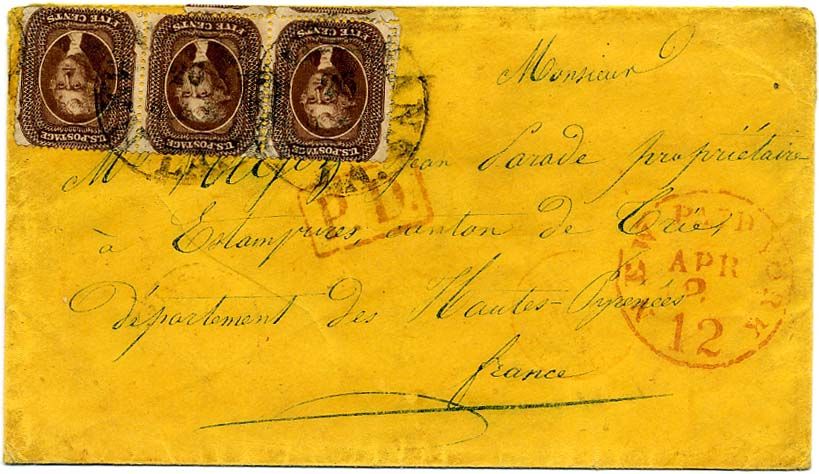 FIVE CENTS
FIVE CENTS
FIVE CENTS
U.S. POSTAGE
U.S. POSTAGE
U.S. POSTAGE
LA.
Monsieur
Jean Parade propriétaire
à Estampures, canton de Trie,
département des Hautes-Pyrénées
france
P.D.
NEW YORK
PAID
APR
12